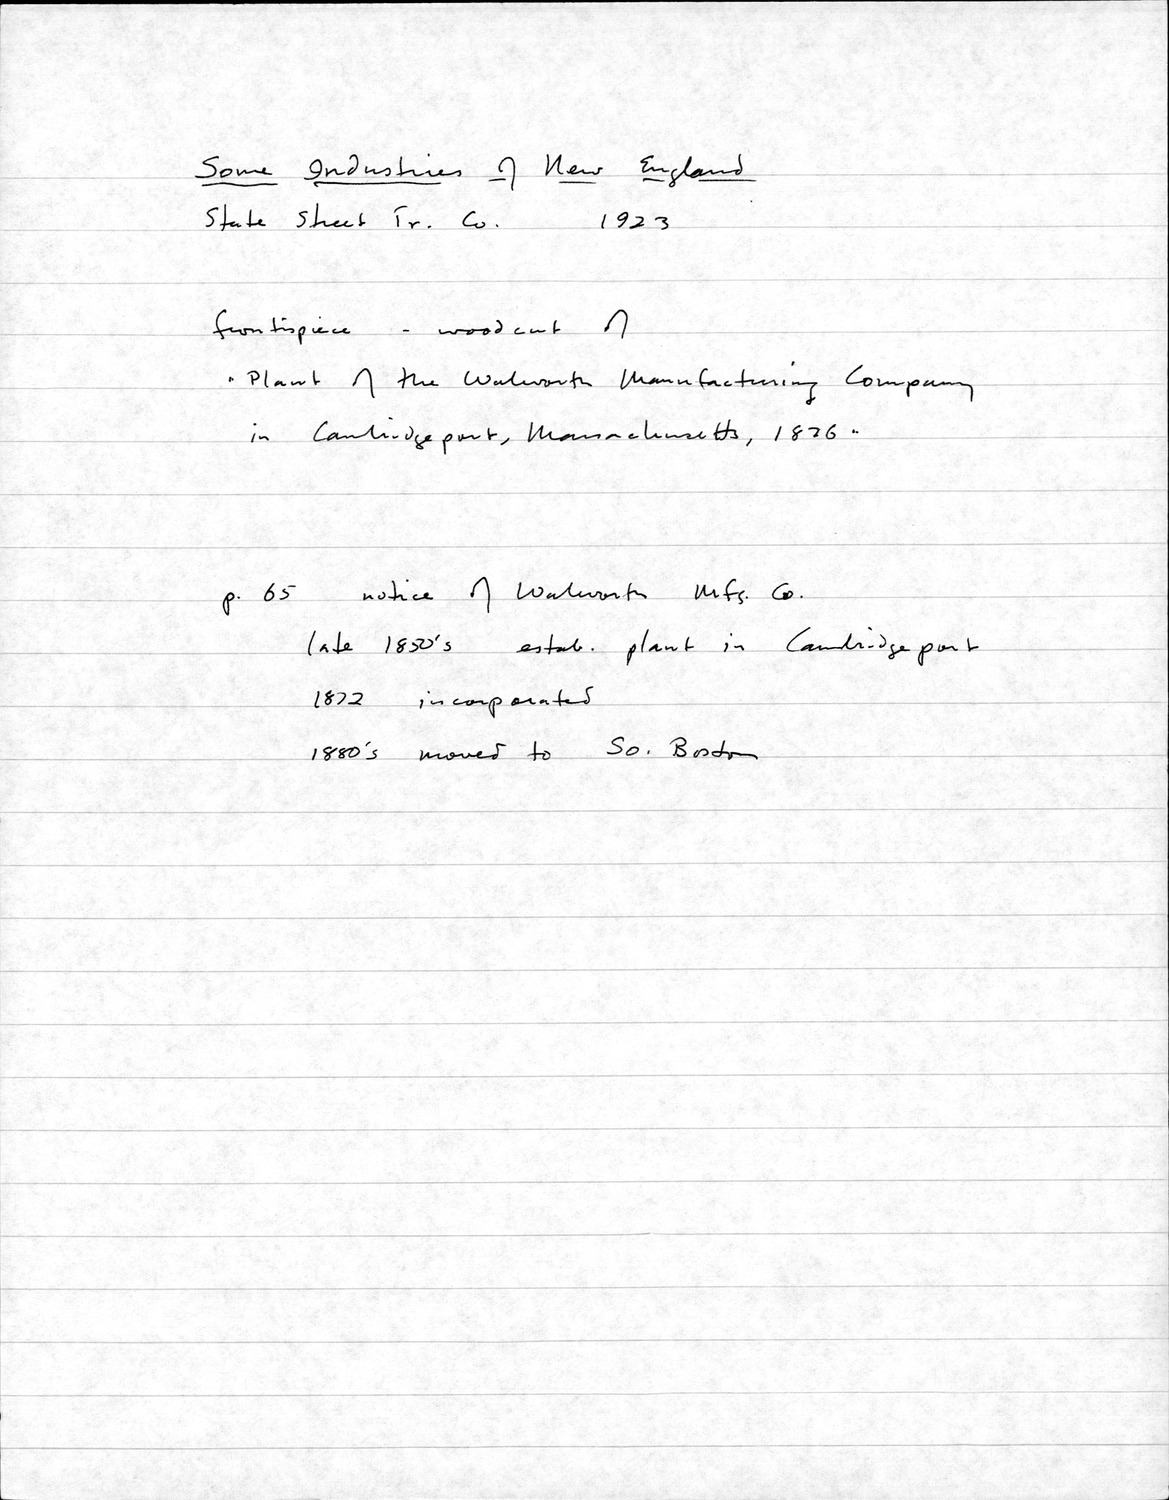 Some Industries of New England
State Street Tr. Co. 1923
frontispiece - woodcut of
"Plant of the Walworth Manufacturing Company
in Cambridgeport, Massachusetts, 1876"
p. 65 notice of Walworth Mfg. Co.
late 1850's estab. plant in Cambridgeport
1872 incorporated
1880's moved to So. Boston